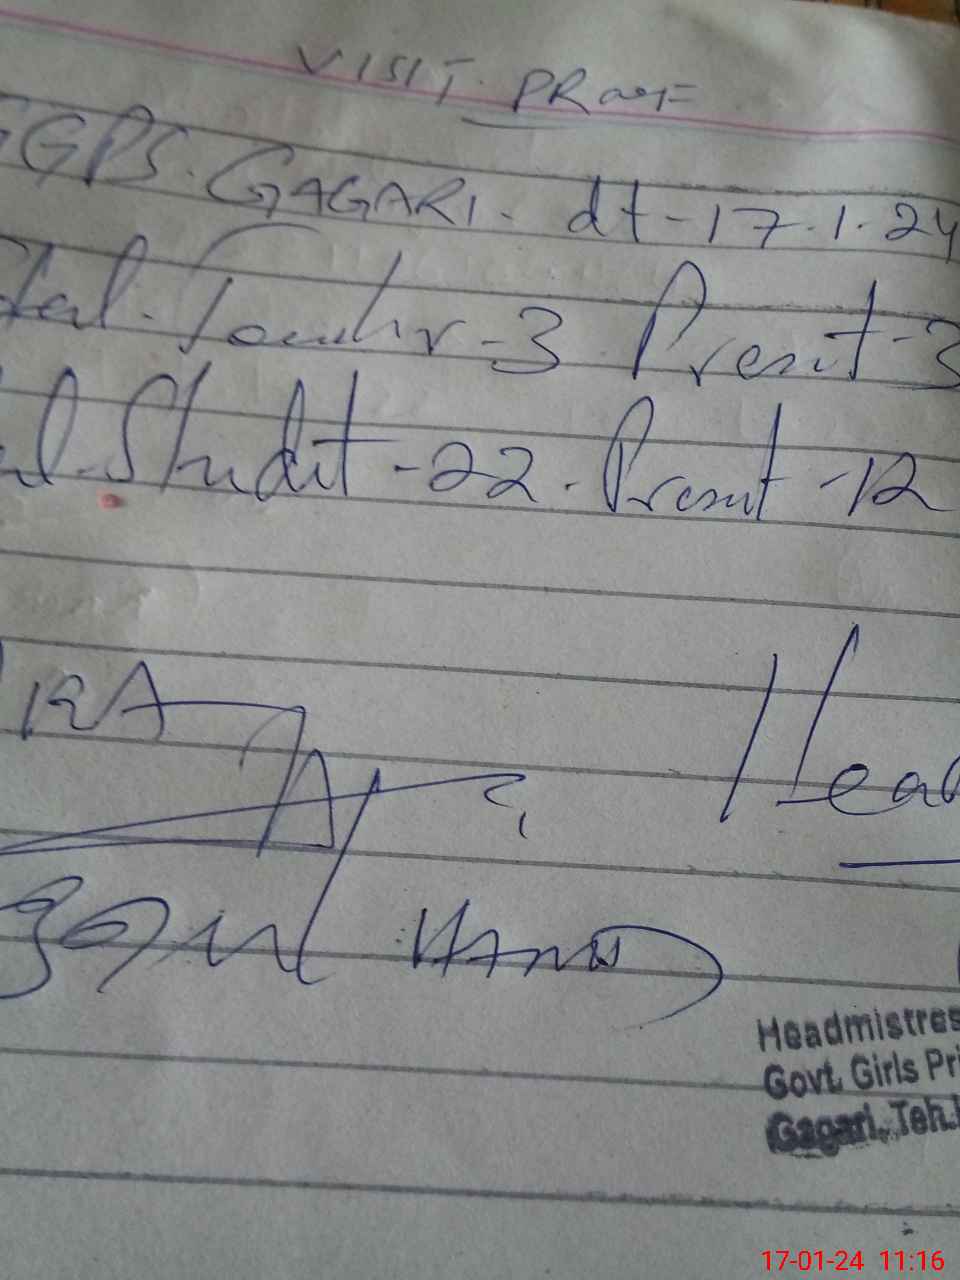 VISIT PROOF
GGPS. GAGARI. dt-17.1.24
Total. Teacher-3 Present-3
Total. Student-22. Present-12
Head
Headmistress
Govt. Girls Pri
Gagari. Teh.
17-01-24 11:16